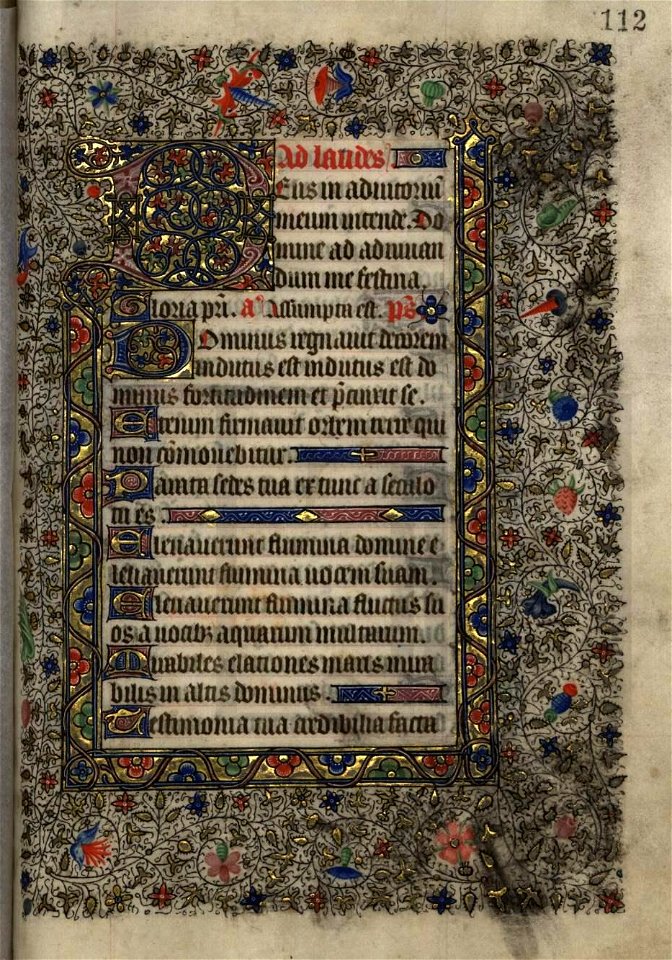 112
Ad laudes
Deus in adiutoriū
meum intende. Do
mine ad adiuuan
dum me festina.
Gloria pr̄i. a' Assumpta est. ps̄
Dominus regnauit decorem
indutus est indutus est do
minus fortitudinem et p̄cinxit se.
Etenim firmauit orbem terre qui
non cōmouebitur.
Parata sedes tua ex tunc a seculo
tu es.
Eleuauerunt flumina domine e
leuauerunt flumina uocem suam.
Eleuauerunt flumina fluctus su
os a uocibꝫ aquarum multarum.
Mirabiles elationes maris mira
bilis in altis dominus.
Testimonia tua credibilia facta